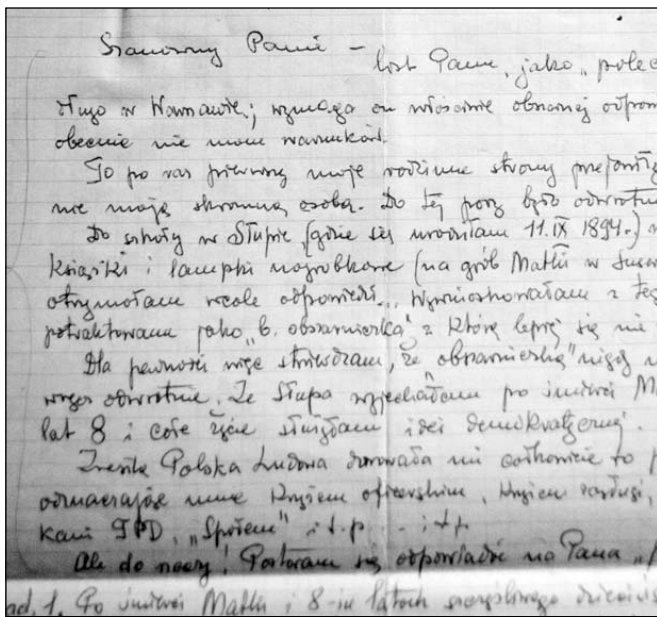 Szanowny Panie –
list Pana, jako „polec
długo w Warszawie; wymaga on właściwie obszernej odpow
obecnie nie mam warunków.
To po raz pierwszy moje rodzinne strony
nie moją skromną osobą. Do tej pory było odwrotn
Do szkoły w Słupie, (gdzie się urodziłam 11.IX 1894.)
książki i lampki nagrobkowe (na grób Matki w
otrzymałam wcale odpowiedzi... Wywnioskowałam z teg
potraktowana jako „b. obszarniczka” z którą lepiej się nie
Dla pewności więc stwierdzam, że „obszarniczką” nigdy
wręcz odwrotnie. Ze Słupa wyjechałam po śmierci M
lat 8 i całe życie służyłam idei demokratycznej.
Zresztą Polska Ludowa darowała mi całkowicie to
odznaczając mnie Krzyżem oficerskim, Krzyżem zasługi,
kami TPD, „Społem” i t.p. ... i t.p.
Ale do rzeczy! Postaram się odpowiadać na Pana „
ad. 1. Po śmierci Matki i 8-iu latach szczęśliwego dziecińs